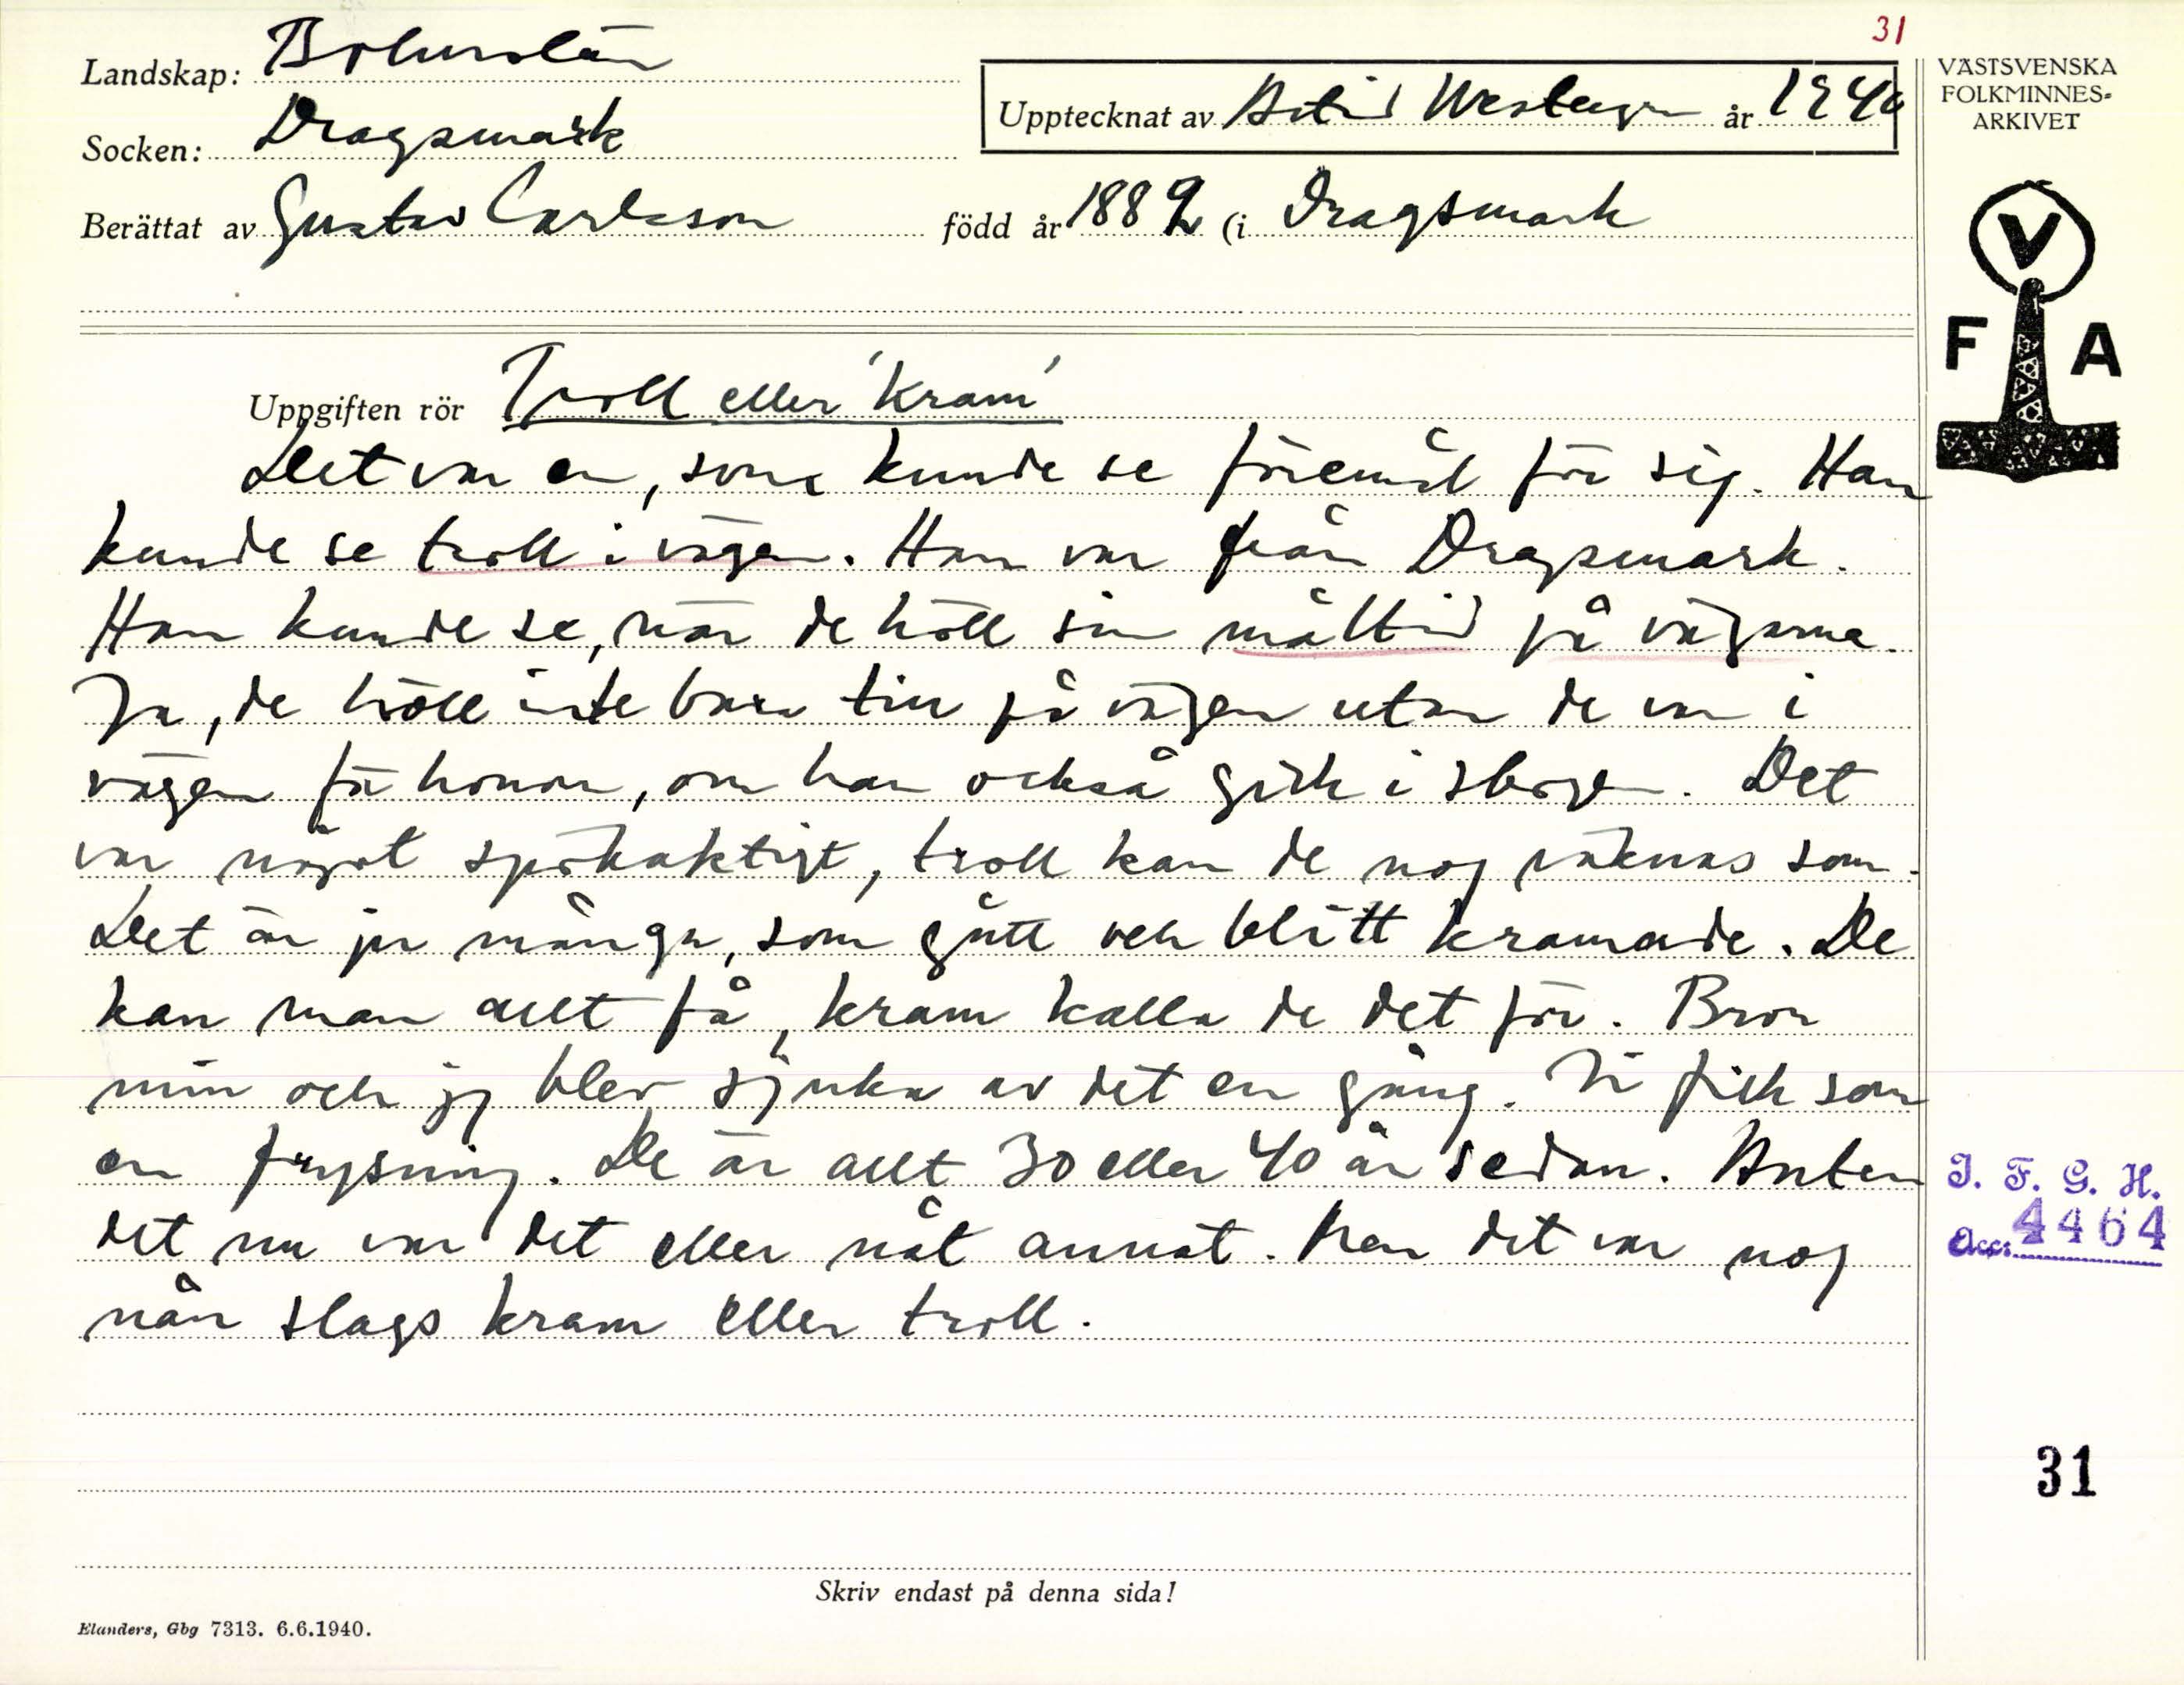 31
Landskap: Bohuslän
Upptecknat av Astrid år 1940
VÄSTSVENSKA
FOLKMINNES-
ARKIVET
Socken: Dragsmark
Berättat av Gustav Carlsson född år 1882 (i Dragsmark
V
F A
Uppgiften rör Troll eller 'kram'
Det var en, som kunde se föremål för sig. Han
kunde se troll i vägen. Han var från Dragsmark.
Han kunde se, när de höll sin måltid på vägarna.
Ja, de höll inte bara till på vägen utan de var i
vägen för honom, om han också gick i skogen. Det
var något spökaktigt, troll kan de nog räknas som.
Det är ju många, som gått och blitt kramade. De
kan man allt få, kram kalla de det för. Bror
min och jag blev sjuka av det en gång. Vi fick som
en frysning. De är allt 30 eller 40 år sedan. Anten
det nu var det eller nåt annat. Men det var nog
nån slags kram eller troll.
I. F. G. H.
Acc. 4464
31
Skriv endast på denna sida!
Elanders, Gbg 7313. 6.6.1940.